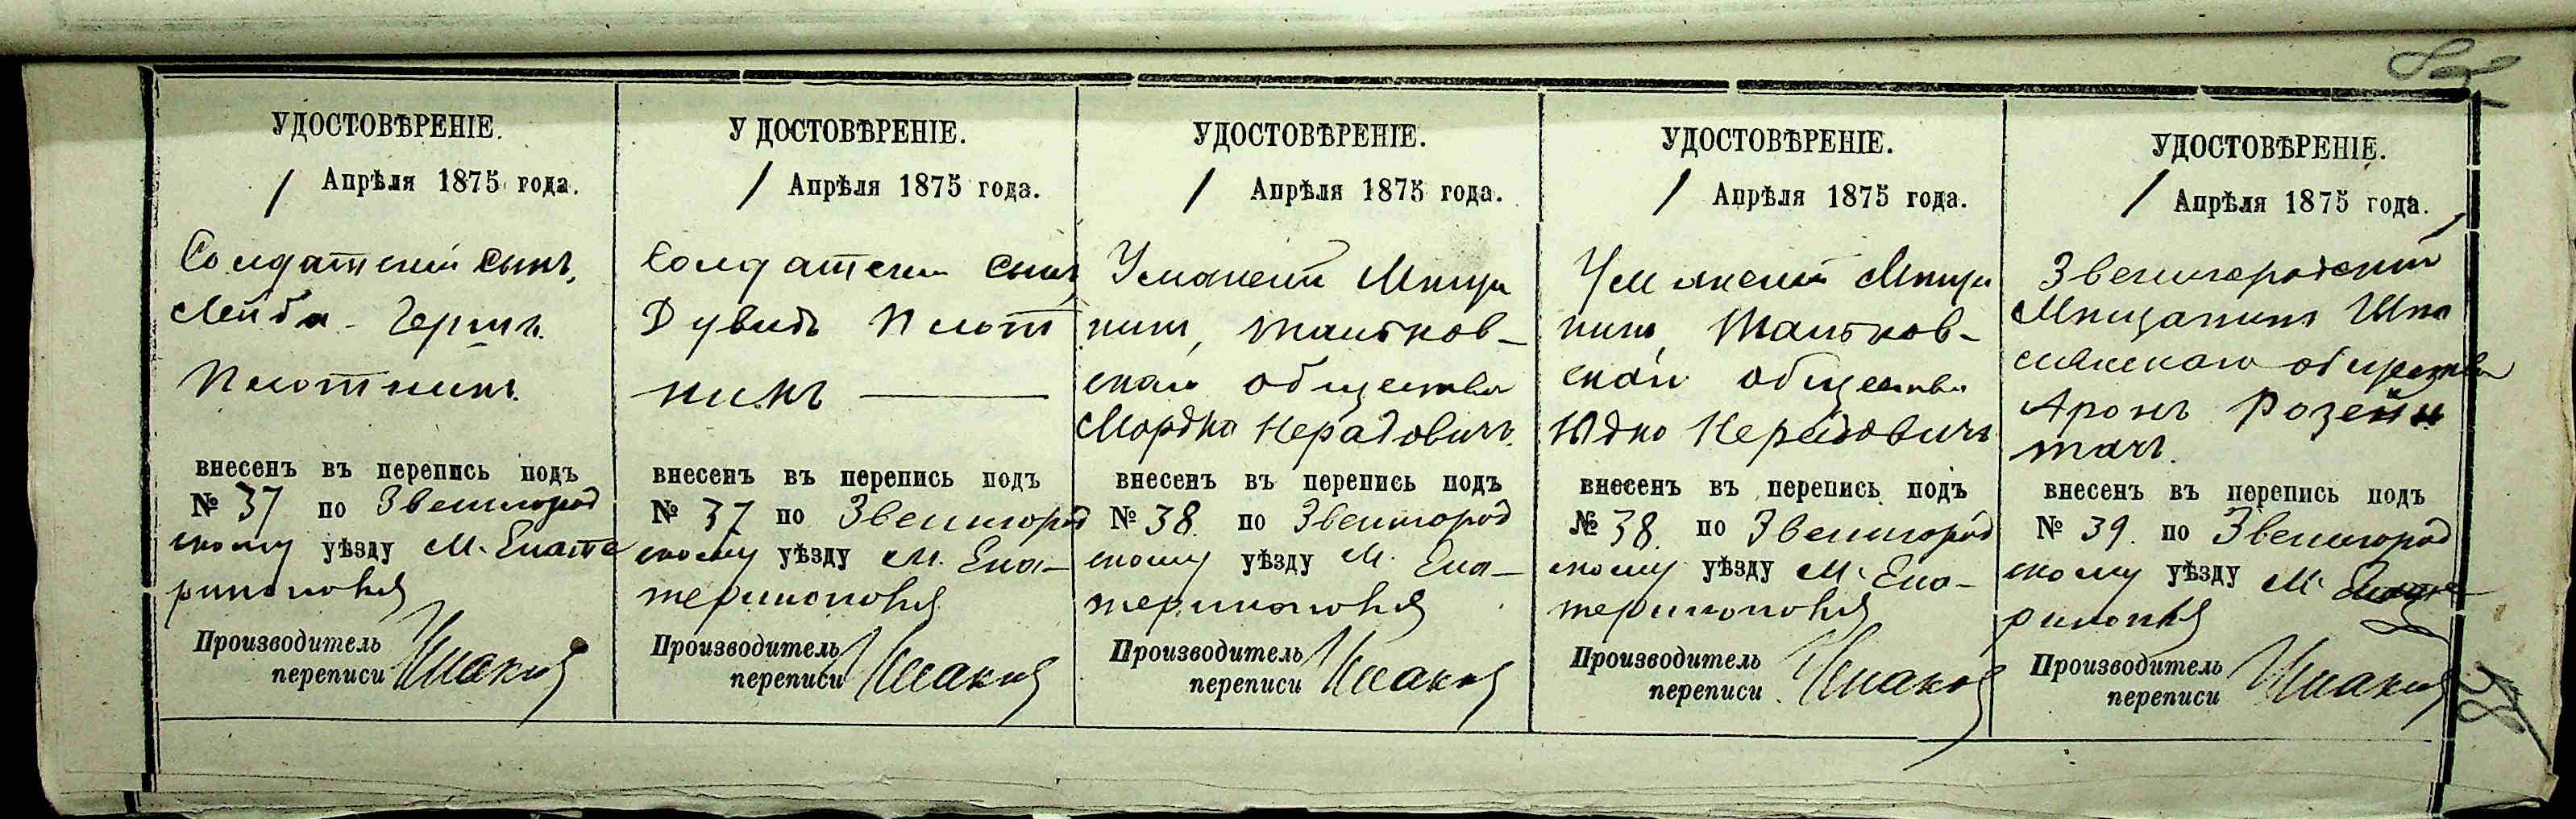 УДОСТОВѢРЕНІЕ.
1 Апрѣля 1875 года.
Солдатскій сынъ,
Лейба - Гершъ
Плотникъ.
внесенъ въ перепись подъ
№ 37 по Звенигород
скому уѣзду М. Екате
ринополя
Производитель
переписи
У ДОСТОВѢРЕНІЕ.
1 Апрѣля 1875 года.
Солдатскій сынъ
Дувидъ Плот
никъ
внесенъ въ перепись подъ
№ 37 по Звенигород
скому уѣзду М. Ека-
теринополя
Производитель
переписи
УДОСТОВѢРЕНІЕ.
1 Апрѣля 1875 года.
Уманскій Мѣща
нинъ, Тальков-
скаго общества
Мордко Нерадовичъ.
внесенъ въ перепись подъ
№ 38. по Звенигород
скому уѣзду М. Ека-
теринополя
Производитель
переписи
УДОСТОВѢРЕНІЕ.
1 Апрѣля 1875 года.
Уманскій Мѣща
нинъ, Тальков-
скаго общества
Юдко Нерадовичъ
внесенъ въ перепись подъ
№ 38. по Звенигород
скому уѣзду М. Ека-
теринополя
Производитель
переписи
УДОСТОВѢРЕНІЕ.
1 Апрѣля 1875 года.
Звенигородскій
Мѣщанинъ Шпо
лянскаго общества
Аронъ
внесенъ въ перепись подъ
№ 39. по Звенигород
скому уѣзду М. Екате-
ринополя
Производитель
переписи